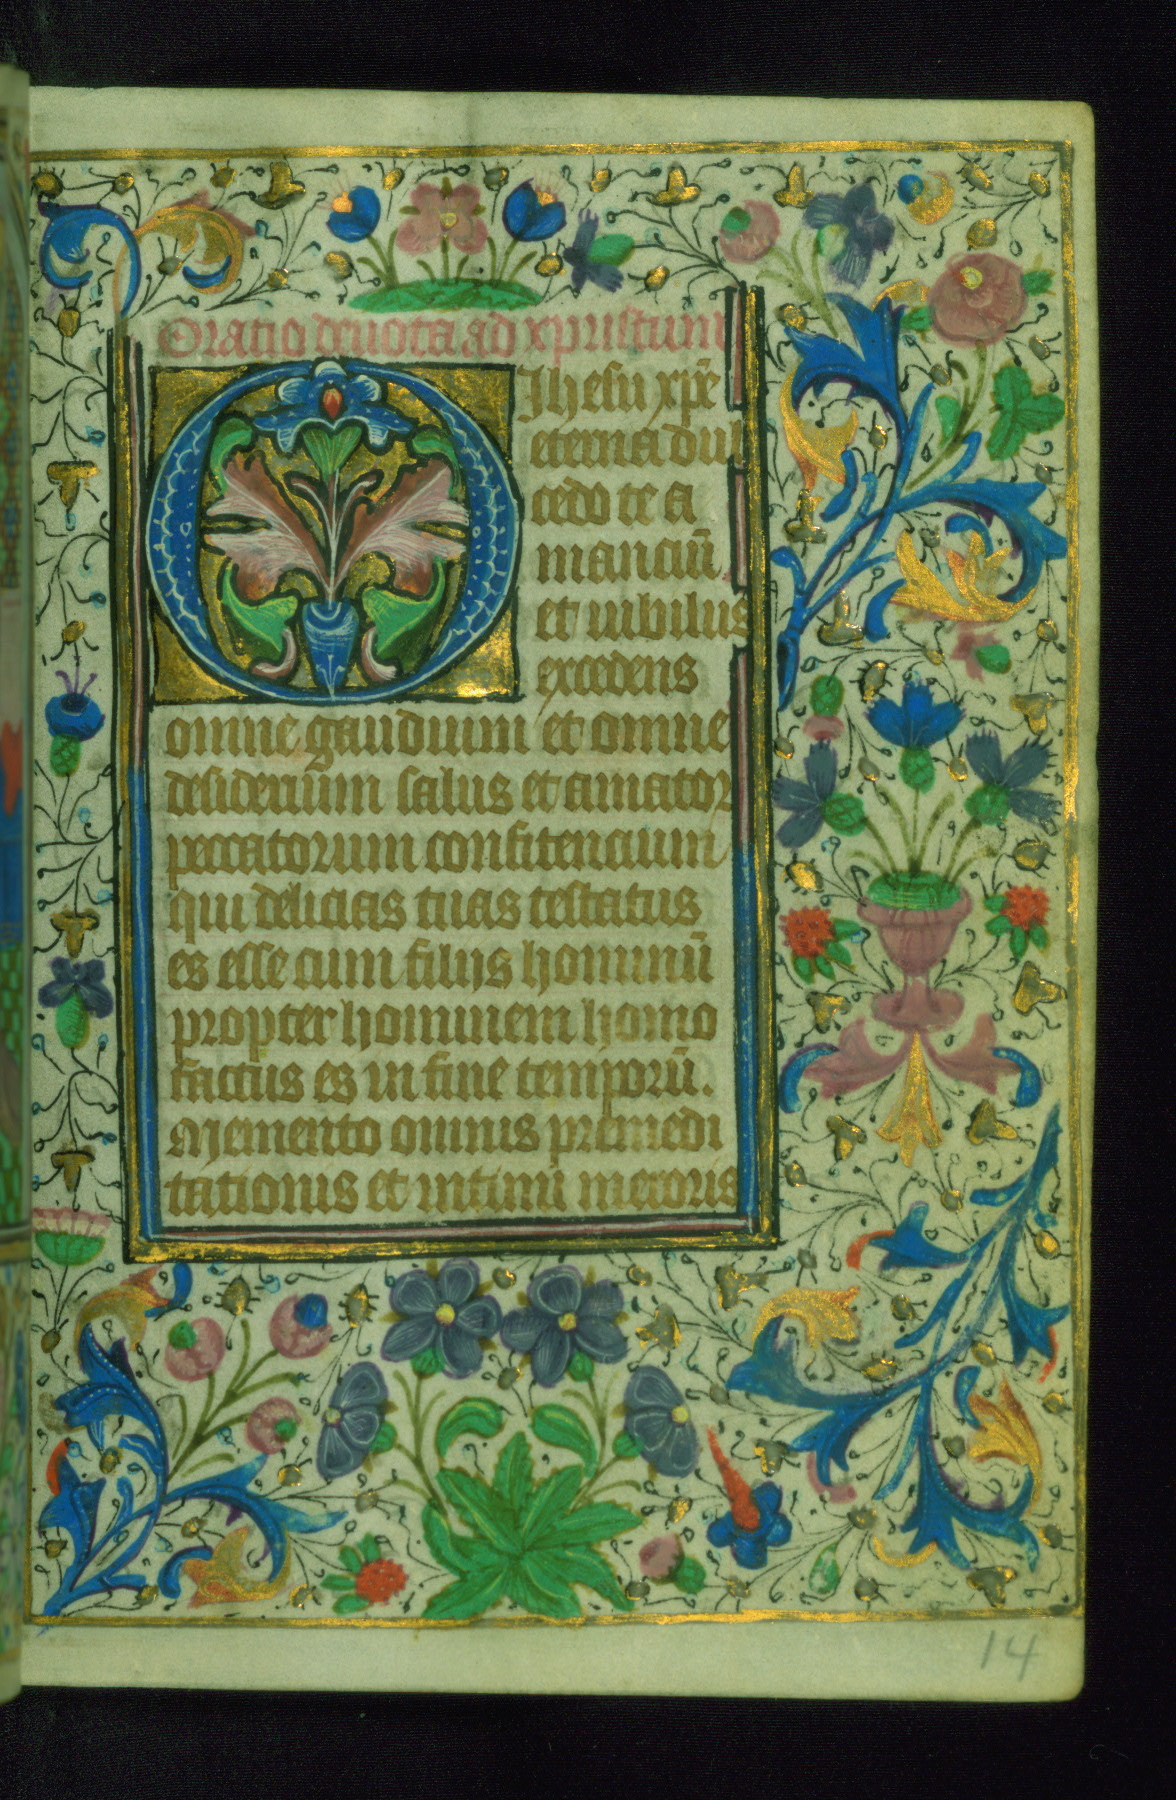 Oratio deuota ad xpristum
O Ihesu xpē
eterna dul
cedo te a
manciū
et iubilus
excedens
omne gaudium et omne
desiderium salus et amator
peccatorum confitencium
qui delicias tuas testatus
es esse cum filijs hominū
propter hominem homo
factus es in fine temporū.
Memento omnis premedi
tationis et intimi meroris
14